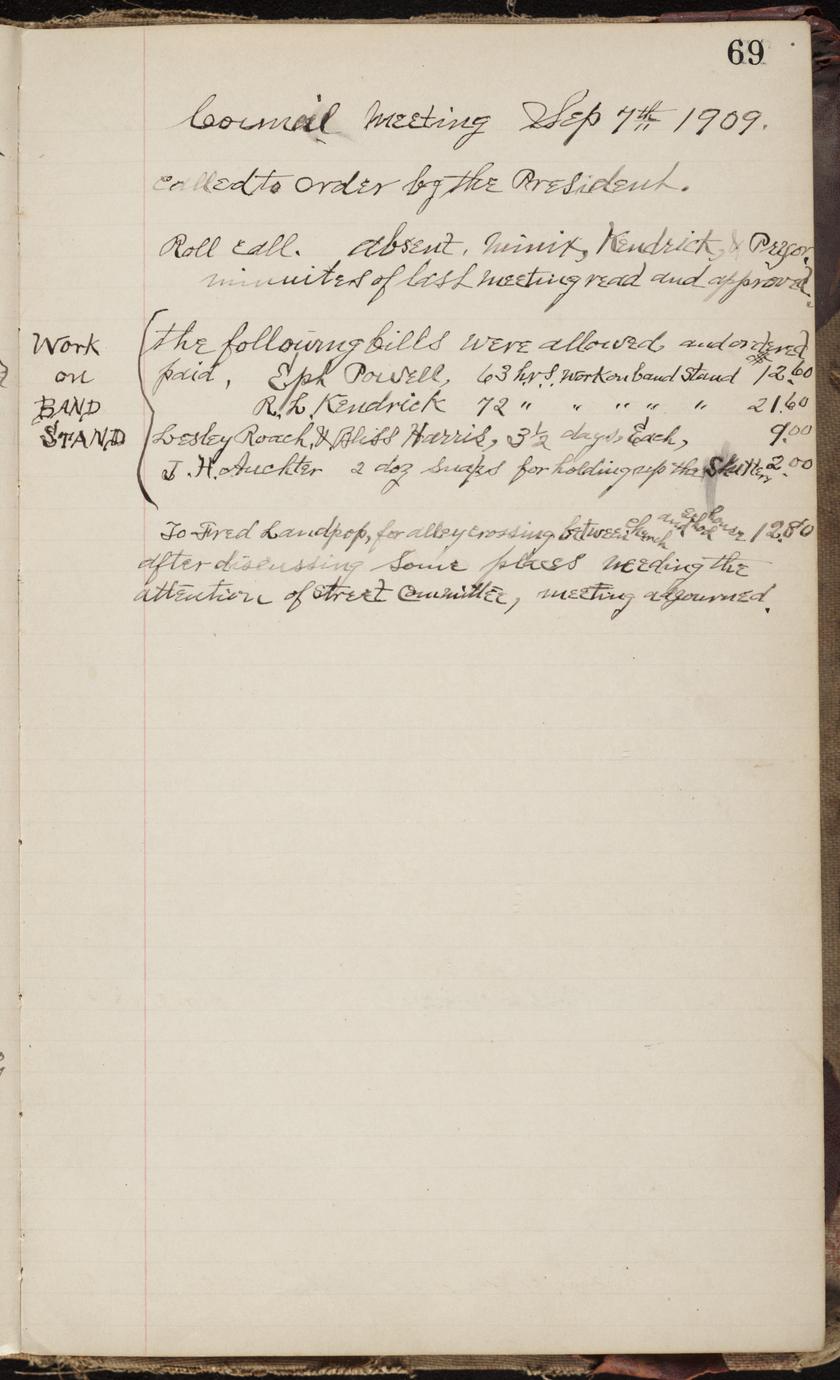 69
Council Meeting Sep 7th 1909.
called to order by the President.
Roll call. absent. Minix, Kendrick, & Pryor.
minuites of last meeting read and approved.
Work on BAND STAND
the following bills were allowed and ordered
paid, Eph Powell, 63 hrs. work on band stand 12.60
R. L. Kendrick 72 " " " " " 21.60
Lesley Roach, & Bliss Harris, 3½ days, Each, 9.00
J. H. Auchter 2 doz snaps for holding up the Shutters 2.00
To Fred Landpop, for alley crossing between church and school house 12.80
after discussing some places needing the
attention of street Committee, meeting adjourned.